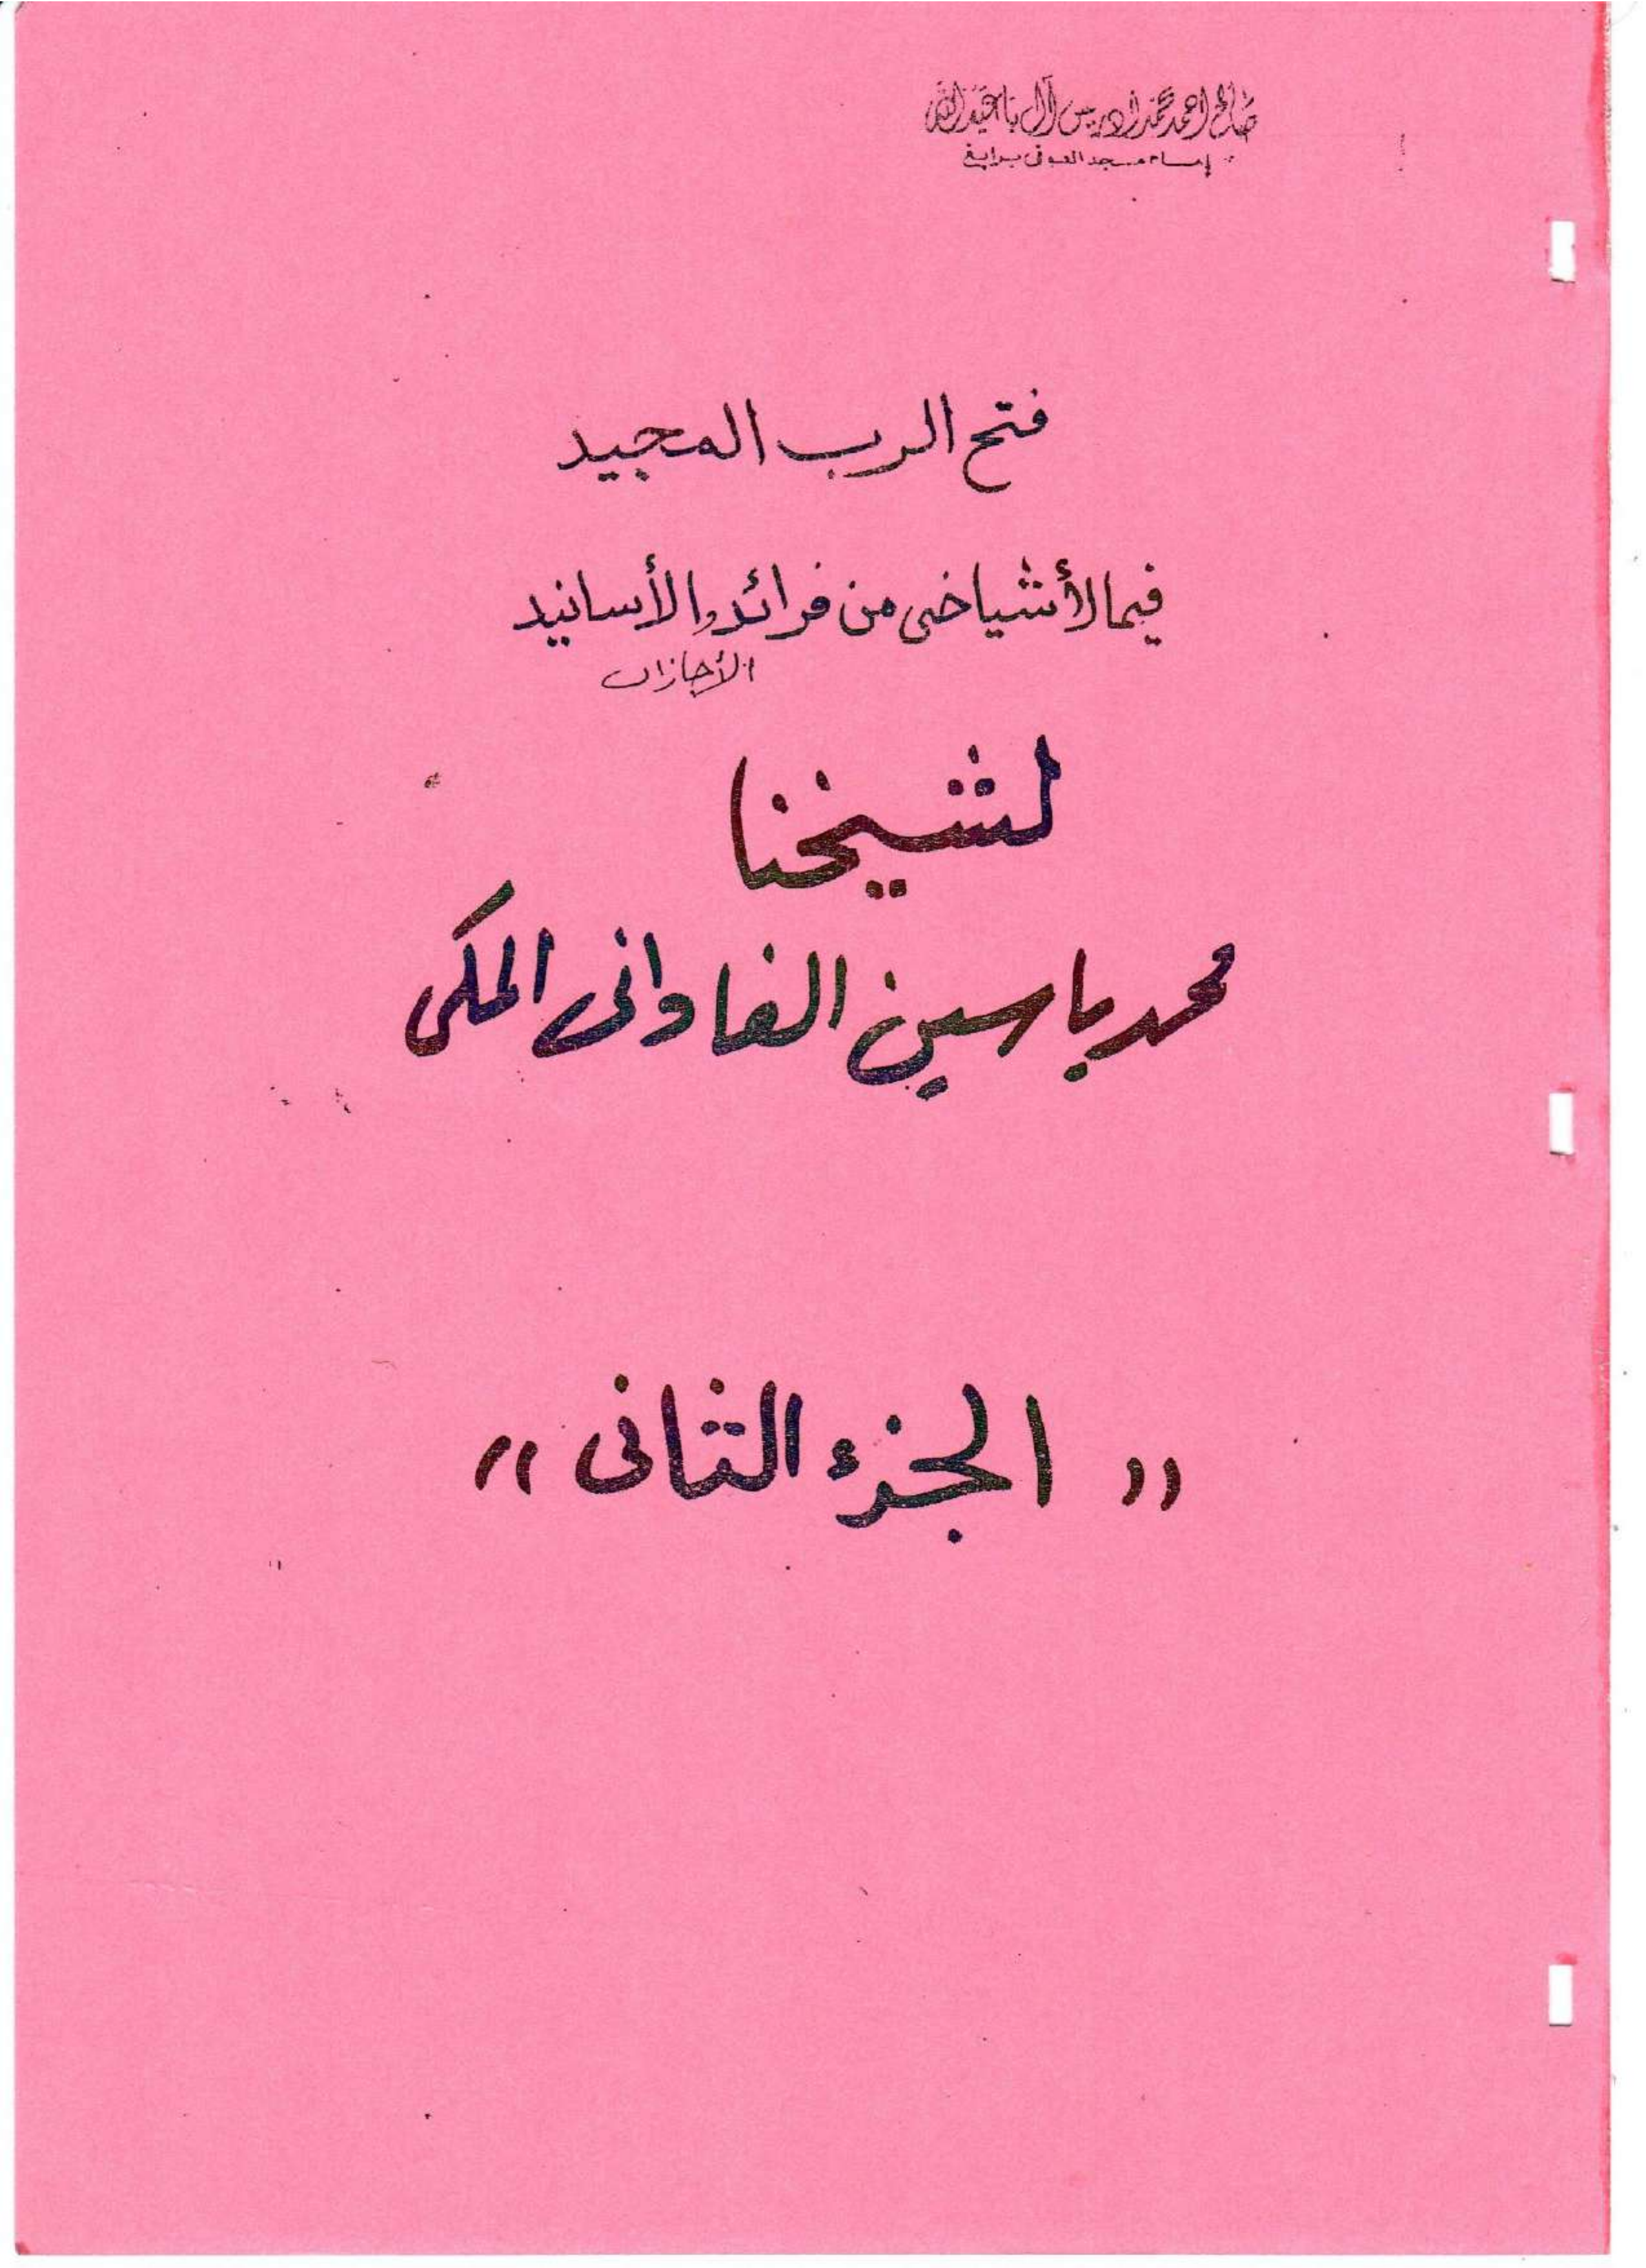 صالح أحمد محمد إدريس آل باعبدالله
إمام مسجد العوفي برابغ
فتح الرب المجيد
فيما لأشياخي من فرائد والأسانيد
الأجازات
لشيخنا
محمد ياسين الفاداني المكي
" الجزء الثاني "